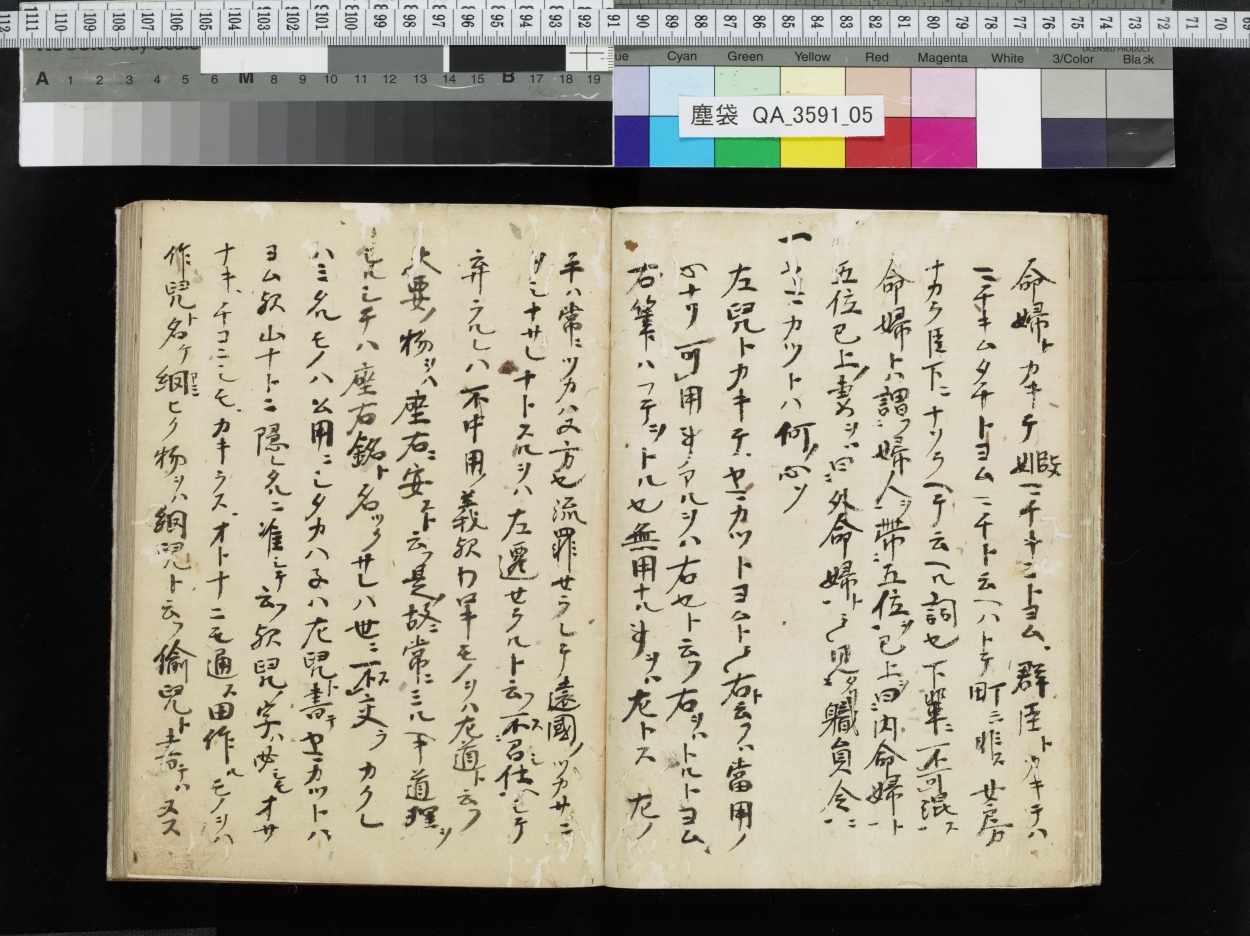 塵袋 QA_3591_05
命婦トカキテ
トヨム 群臣トカキテハ
マチキムタチトヨム マチト云ヘハトテ町ニ非ス 女房
ナカラ臣下ニナソラヘテ云ヘル詞也 下輩ニ不可混ス
命婦トハ謂婦人帯五位已上曰内命婦ト
五位已上妻ヲハ曰外命婦ト見職員令ニ
一 ヤマカツトハ何ノ心ソ
左児トカキテヤマカツトヨム 右ト云フハ當用ノ
心ナリ 可用事アルヲハ右也ト云フ 右ヲハトルトヨム
右筆ハフテヲトル也 無用ナル事ヲハ左トス 左ノ
手ハ常ニツカハヌ方也 流罪セラレテ遠國ノツカサニ
ナサレナトスルヲハ左遷セラルト云フ 不召仕シテ
弃ラルレハ不中用ノ義歟 ワロキモノヲハ左道ト云フ
大要ノ物ヲハ座右ニ安スト云フ 是ノ故ニ常ニミルヘキ道理ヲ
シルシテハ座右銘ト名ツク サレハ世ニ不交ラカクレ
ハミタルモノハ公用ニシタカハネハ左児ト書テヤマカツトハ
ヨム歟 山ナトニ隠レタルニ准シテ云フ歟 児ノ字ハ必シモオサ
ナキチコニシモカキラス オトナニモ通ス 田作ルモノヲハ
作児ト名ケ 綱ヒク物ヲハ綱児ト云フ 偸児ト書テハヌス